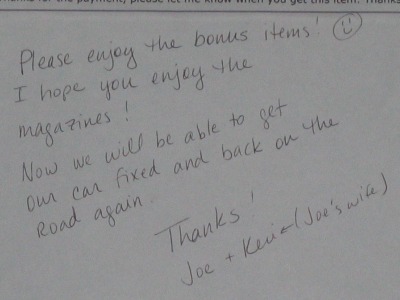 for the payment, please let me know when you get this item. Thanks
Please enjoy the bonus items!
I hope you enjoy the
magazines!
Now we will be able to get
our car fixed and back on the
Road again.
Thanks!
Joe + Keri ← (Joe's wife)